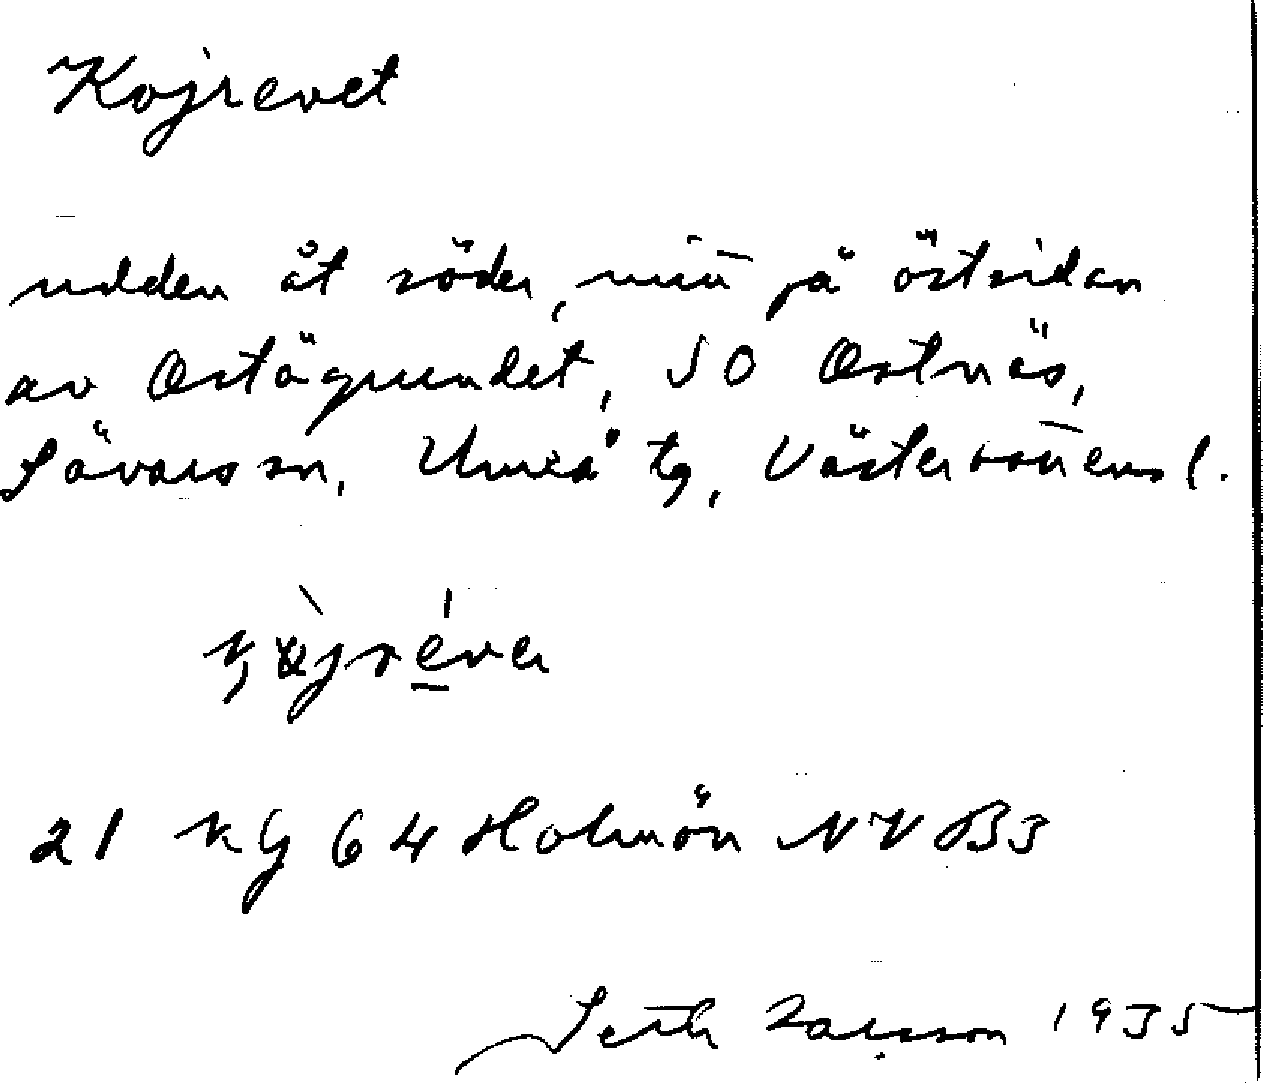 Kojrevet
udden åt söder, på östsidan
av Ostögrundet, SO Ostnäs,
Sävars sn, Umeå tg, Västerbottens l.
21 kg 64 Holmön NV B3
Seth Larsson 1935